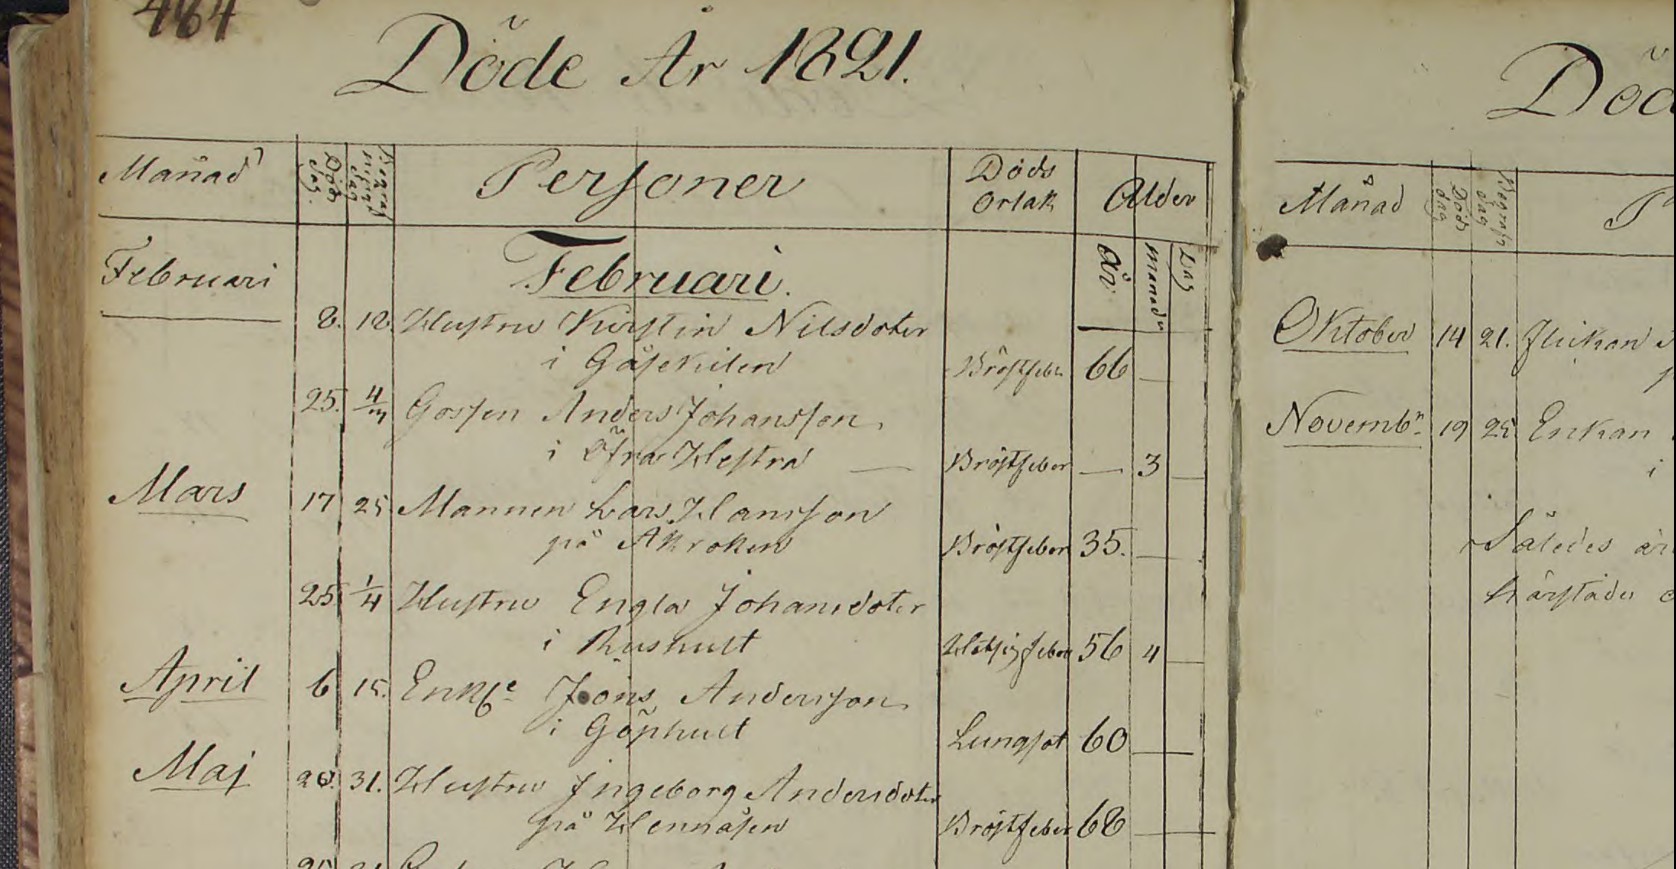 484
Döde År 1821.
Månad Döds dag Begrafnings dag Personer Döds Orsak Ålder
År Månader Dag
Februari Februari.
8. 18. Hustru Kirstin Nilsdoter
i Gåsekulen Bröstfeber 66 —
25. 4/3 Gossen Anders Johansson
i Öfra Hestra — Bröstfeber — 3 —
Mars 17 25 Mannen Lars Hansson
på Åkroken Bröstfeber 35. —
25 1/4 Hustru Engla Johansdoter
i Rushult Hetsigfeber 56 4 —
April 6 15. Enkl:e Jöns Andersson
i Göphult Lungsot 60 —
Maj 20. 31. Hustru Ingeborg Andersdoter
på Hennåsen Bröstfeber 68 —
25
Död
Månad Döds dag Begrafs dag P
Oktober 14 21. Flickan
Novembr 19 25. Enkan
i
Således är
härstädes